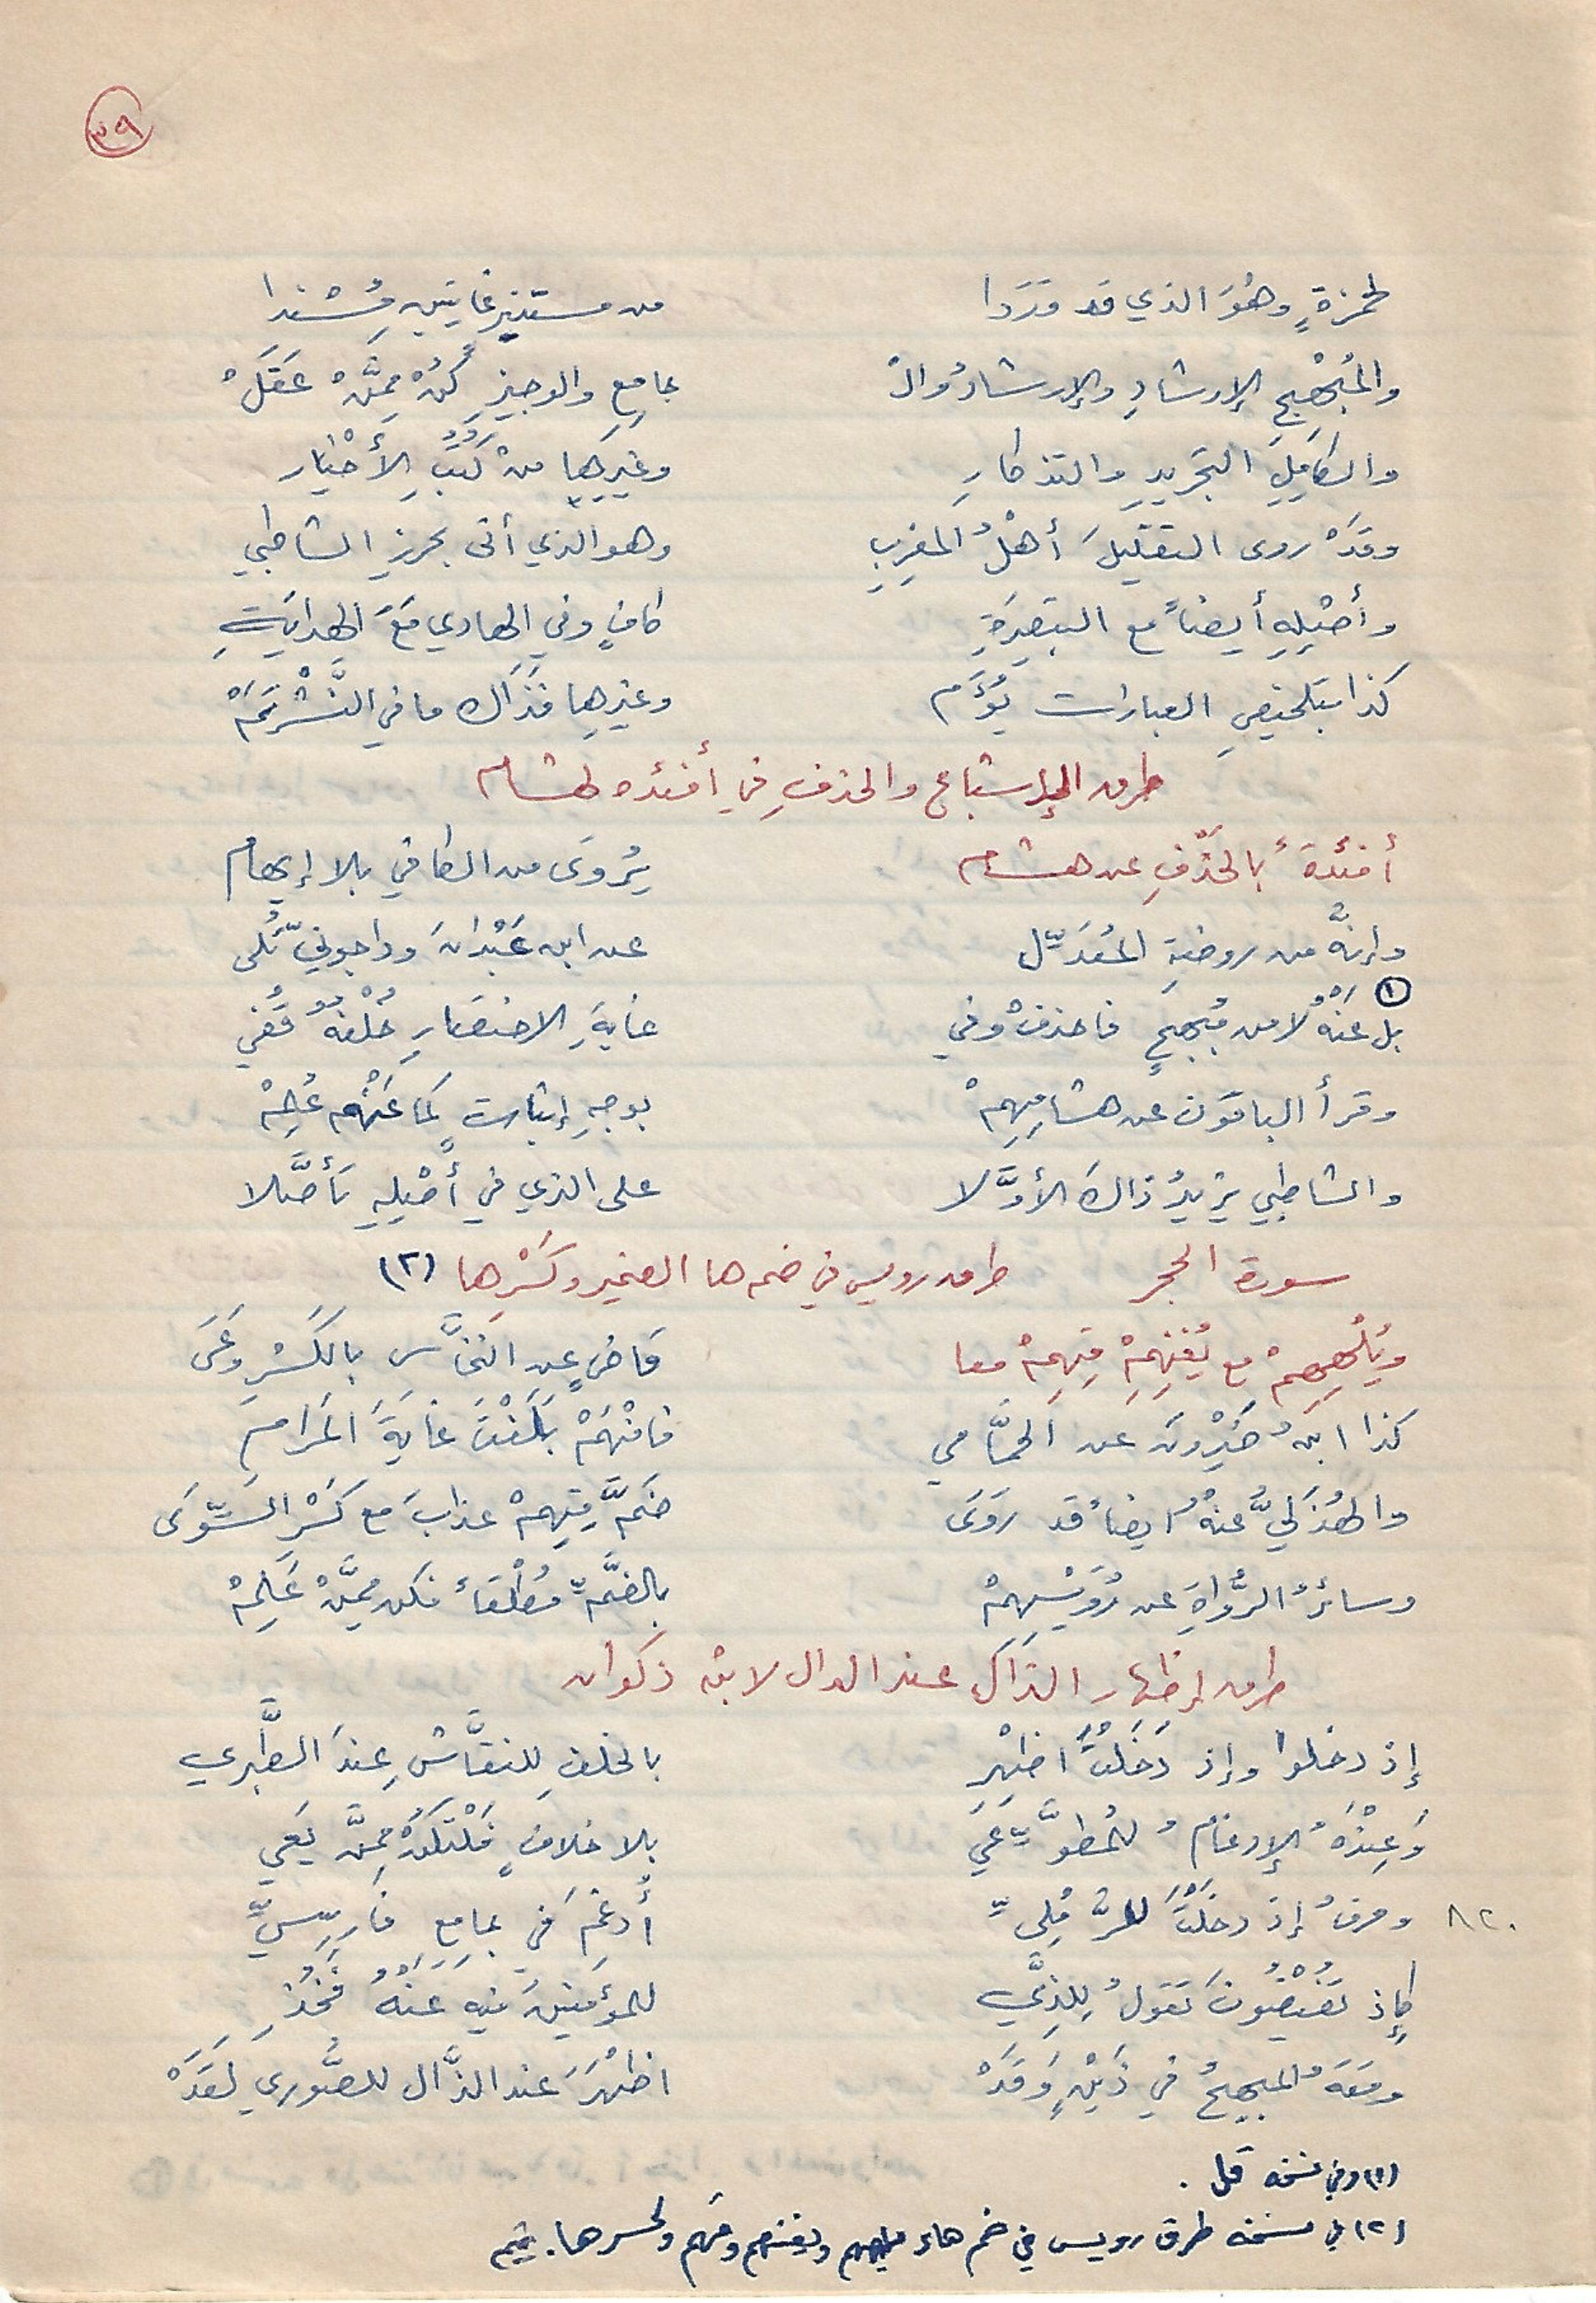 ٣٩
لحمزةٍ وهُوَ الذي قد وَرَدا من مستنيرٍ غايتينِ مُسْنَدا
والمُبْهِجِ الإرشادِ والإرشادُ والْ جامِعِ والوجيزِ كُنْ مِمَّنْ عَقَلْ
والكامِلِ التجريدِ والتذكارِ وغيرِها منْ كُتُبِ الأَخْيار
وقدْ روى التقليلَ أهْلُ المغرِبِ وهو الذي أتى بحرزِ الشاطبي
وأصْلِهِ أيضاً مع التبصِرَةِ كافٍ وفي الهادي مَعَ الهدايَةِ
كذا بتلخيصِ العبارات يُؤَم وغيرِها فذاك ما في النَّشْرِ تَمْ
طرق الإشباع والحذفِ في أفئده لهشام
أفئدةً بالحَذْفِ عن هشام يُروَى من الكافي بلا إيهام
وإنَّهُ من روضةِ المُعَدِّل عن ابن عَبْدانَ وداجونيٍّ تُلى
بل (١) عنْهُ لا من مُبهِجٍ فاحذفْ وفي غايةِ الاختصارِ خُلْفهُ قُفي
وقرأ الباقون عن هشامِهِمْ بوجهِ إثباتٍ كما عَنْهُم عُلِمْ
والشاطبي يزيدُ ذاكَ الأوَّلا على الذي في أصْلِهِ تَأَصَّلا
سورة الحجر طرق رويس في ضم ها الضمير وكَسْرِها (٢)
ويُلْهِهِمْ مع يُغْنِهِمْ قِهِمْ معا قاضٍ عن النخَّاس بالكَسْرِ وَعَى
كذا ابنُ خَيْرونَ عن الحمَّامي فافْهَمْ بَلَغْتَ غايَةَ المَرَامِ
والهُذَليُّ عنْهُ أيضاً قد رَوَى ضَمَّ قِهِمْ عذابَ مع كَسْرِ السِّوَى
وسائرُ الرُّواةِ عن رُوَيْسِهِمْ بالضَّمِّ مُطْلَقاً فكن مِمَّنْ عَلِمْ
طرق إظهار الذال عند الدال لابن ذكوان
إذ دخلوا وإذ دَخَلْتَ اظهِرِ بالخلفِ للنقَّاشِ عِندَ الطَّبري
وَعِنْدَهُ الإدغامُ للمُطَّوِّعي بلا خلافٍ فَلْتَكُنْ مِمَّنْ يَعي
٨٢٠ وحرفُ إذ دخلْتَ للرَّمْلِيِّ أُدغِمَ في جامِعِ فارِسِيِّ
كإذ تُفيضُونَ تَقولُ لِلذِي للمؤمنينَ فيهِ عَنْهُ فَخُذِ
ومَعَهُ المبهجُ في ذَيْنِ وَقَدْ اظهَرَ عند الذَّال للصُّوري لَقَدْ
(١) وفي نسخه قل .
(٢) في نسخه طرق رويس في ضم هاء يلههم ويغنهم وقهم وكسرها.